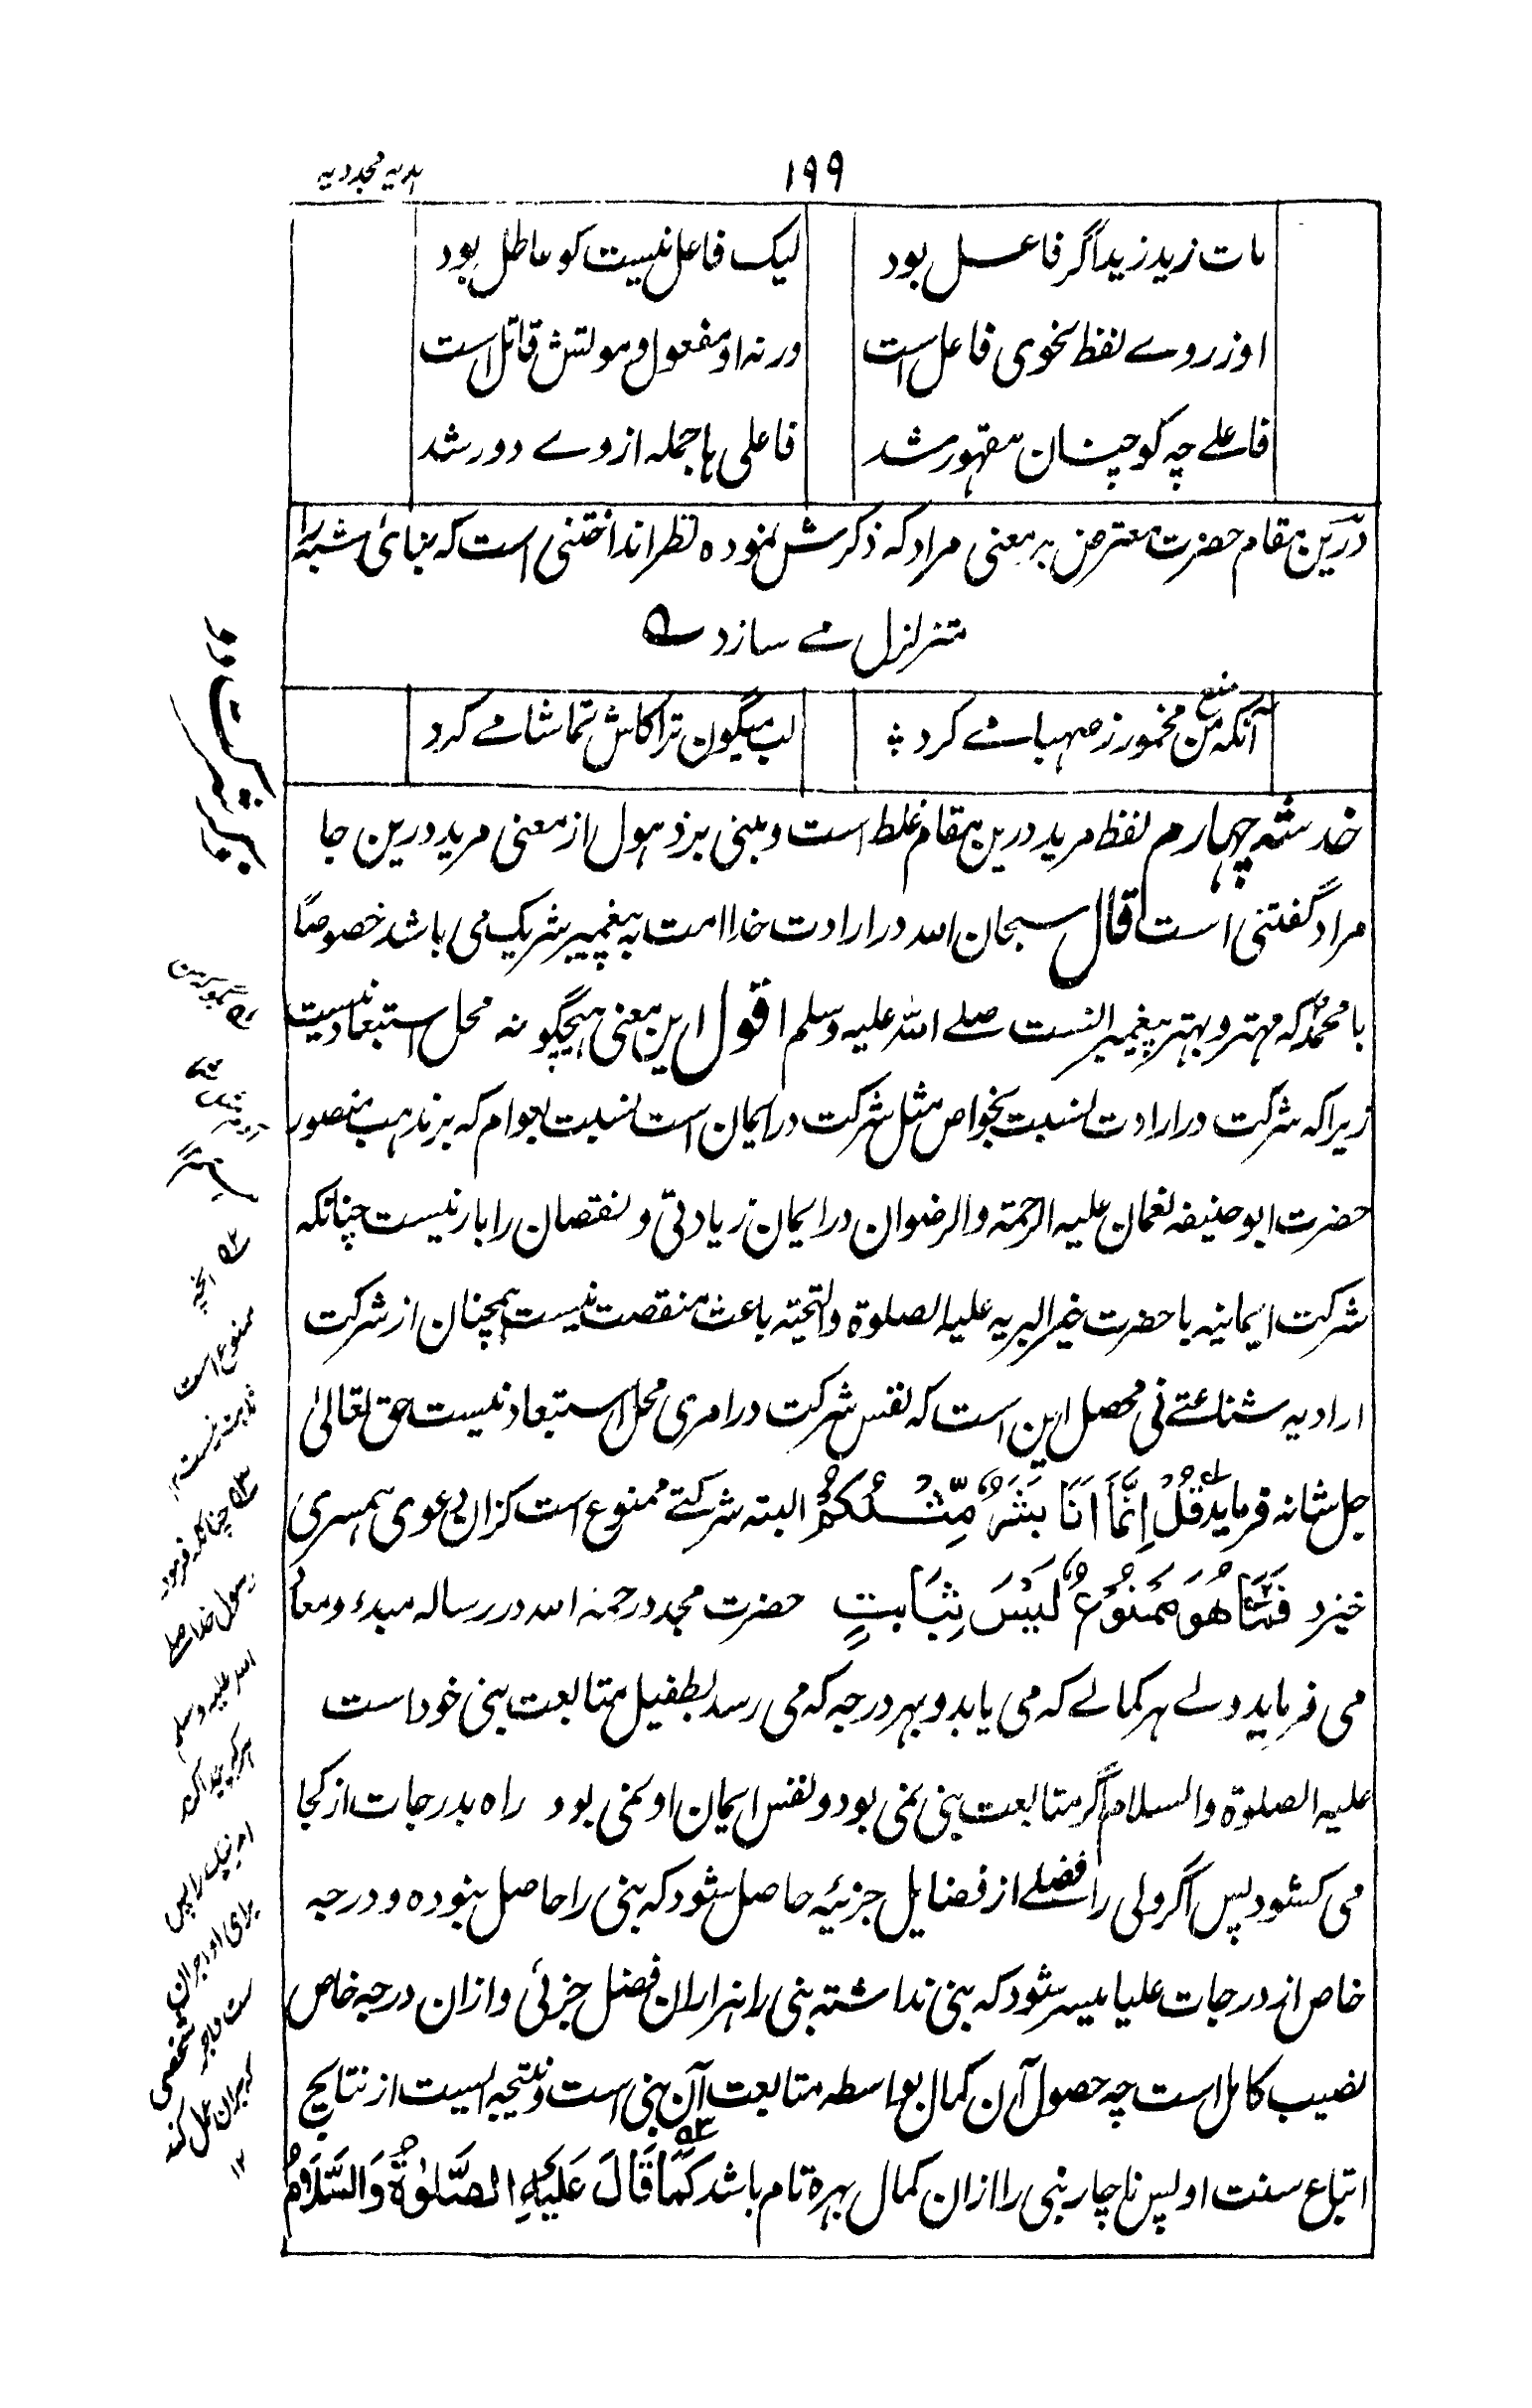 ۱۹۹
ہدیہ مجددیہ
مات زید زید اگر فاعل بود
لیک فاعل نیست کو عاطل بود
او ز روے لفظ نحوی فاعل است
ورنه او مفعول و موتش قاتل است
فاعلے چه کو چنان مقهور شد
فاعلی ها جمله از وے دور شد
درین مقام حضرت معترض بر معنی مراد که ذکرش نموده نظر انداختنی است که بنای شبه را
متزلزل مے سازد ے
آنکه منع من مخمور ز صهبا مے کرد
لب میگون ترا کاش تماشا مے کرد
خدشه چهارم لفظ مرید درین مقام غلط است و مبنی بر ذهول از معنی مرید درین جا
مراد گفتنی است قال سبحان الله در ارادت خدا امت به پیغمبر شریک می باشد خصوصاً
با محمدؐ که مهتر و بهتر پیغمبرانست صلے الله علیه وسلم اقول این معنی هیچگونه محل استبعاد نیست
زیرا که شرکت در ارادت نسبت بخواص مثل شرکت در ایمان است نسبت بعوام که بر مذهب منصور
حضرت ابو حنیفه نعمان علیه الرحمة والرضوان در ایمان زیادتی و نقصان را بار نیست چنانکه
شرکت ایمانیه با حضرت خیر البریه علیه الصلوة والتحیته باعث منقصت نیست همچنان از شرکت
ارادیه شناعتے نی محصل این است که نفس شرکت در امری محل استبعاد نیست حق تعالیٰ
جل شانه فرماید قُلْ اِنَّمَا اَنَا بَشَرٌ مِّثْلُکُمْ البته شرکتے ممنوع است کزان دعوی همسری
خیزد فَمَا هُوَ مَمْنُوْعٌ لَیْسَ بِثَابِتٍ حضرت مجدد رحمة الله در رساله مبدء و معاد
می فرماید ولے هر کمالے که می یابد و بهر درجه که می رسد بطفیل متابعت نبی خود است
علیه الصلوة والسلام اگر متابعت نبی نمی بود و نفس ایمان او نمی بود راه بدرجات از کجا
می کشود پس اگر ولی را فضلے از فضایل جزئیه حاصل شود که نبی را حاصل نبوده و درجه
خاص از درجات علیا میسر شود که نبی نداشته نبی را نیز ازان فضل جزئی و ازان درجه خاص
نصیب کامل است چه حصول آن کمال بواسطه متابعت آن نبی است و نتیجه ایست از نتایج
اتباع سنت او پس ناچار نبی را ازان کمال بهره تام باشد کَمَا قَالَ عَلَیْهِ الصَّلٰوةُ وَالسَّلَامُ
بگو که من
آنچه
ممنوع است
ثابت نیست
چنانکه فرمود
رسول خدا صلے
الله علیه وسلم
هر که پیدا کند
امر نیک را پس
برای او اجر آن
ست و اجر شخصی
که بر آن عمل کند
۱۲